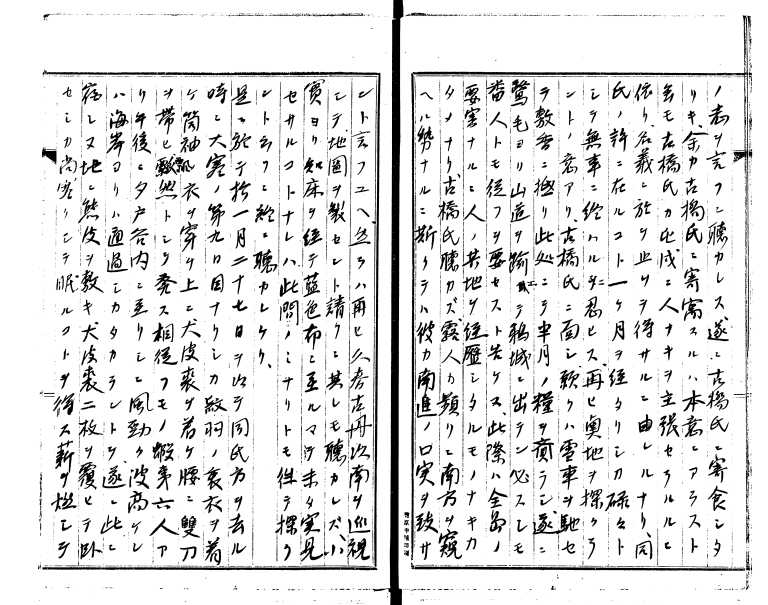 ノ志ヲ言フニ聴カレス遂ニ古橋氏ニ寄食シタ
リキ余カ古橋氏ニ寄寓スルハ本意ニアラスト
雖モ古橋氏カ此成ニ人ナキヲ主張セラルルト
依リ名義ニ於テ止ヲ得サルニ由レルナリ同
氏ノ許ニ在ルコト一ケ月ヲ経タリシカ碌々ト
シテ無事ニ終ハルニ忍ヒス再ヒ奥地ヲ探クラ
ントノ意アリ古橋氏ニ面シ願クハ雪車ヲ馳セ
テ敷香ニ極リ此処ニテ半月ノ糧ヲ齎ラシ遂ニ
鵞毛ヨリ山道ヲ踰ヱテ鵜城ニ出テン必スシモ
番人トモ従フヲ要セスト告ケス此際ハ全島ノ
要害ナルニ人ノ其地ヲ経歴シタルモノナキカ
タメナリ古橋氏聴カズ露人カ頻リニ南方ヲ窺
ヘル勢ナルニ斯クテハ彼カ南進ノ口実ヲ致サ
ント言フユヘ然ラハ再ヒ久春古丹以南ヲ巡視
シテ地図ヲ製セント請クニ其レモ聴カレズハ
買ヨリ知床ヲ経テ藍色布ニ至ルマテ未タ実見
セサルコトナレハ此間ノミナリトモ往テ探ク
ントテフニ終ニ聴カレケリ
是ニ於テ拾一月二十七日ヲ以テ同氏方ヲ去ル
時ニ大寒ノ第九日目ナリシカ紋羽ノ裏衣ヲ着
ケ筒袖ノ衣ヲ穿チ上ニ犬皮裘ヲ着ケ腰ニ雙刀
ヲ帯ヒ飄然トシテ発ス相従フモノ蝦夷六人ア
リ午後ニ夕戸谷内ニ至リシニ風勁ク波高ケレ
ハ海岸ヨリハ通過シカタカラントテ遂ニ此ニ
宿シヌ地ニ熊皮ヲ敷キ犬皮裘二枚ヲ覆ヒテ臥
セシカ尚寒クシテ眠ルコトヲ得ス薪ヲ燃シテ